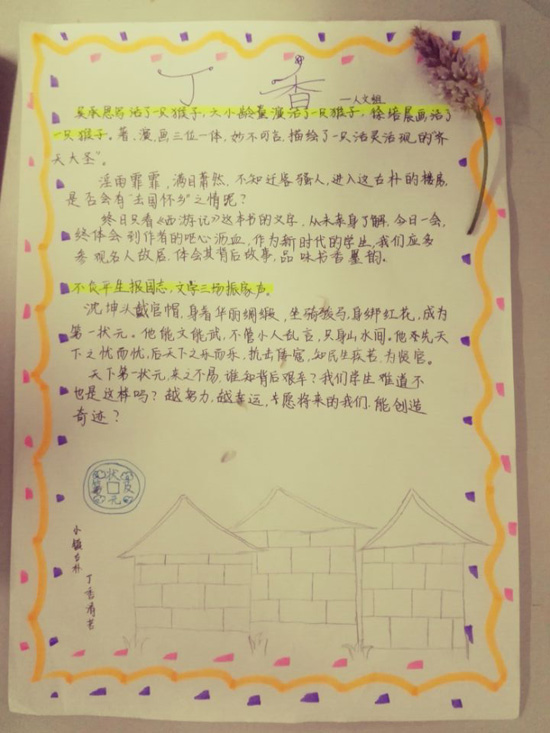 丁香
——人文组
吴承恩写活了一只猴子，六小龄童演活了一只猴子，徐培晨画活了
一只猴子。著、漫、画三位一体，妙不可言，描绘了一只活灵活现的“齐
天大圣”。
淫雨霏霏，满目萧然，不知迁客骚人，进入这古朴的楼房，
是否会有“去国怀乡”之情呢？
终日只看《西游记》这本书的文字，从未亲身了解，今日一会，
终体会到作者的呕心沥血，作为新时代的学生，我们应多
参观名人故居，体会其背后故事，品味书香墨韵。
不负平生报国志，文学三场振家声。
沈坤头戴官帽，身着华丽绸缎，坐骑骏马，身绑红花，成为
第一状元。他能文能武，不管小人乱言，只身山水间。他本先天
下之忧而忧，后天下之乐而乐，抗击倭寇，知民生疾苦，为贤官。
天下第一状元，来之不易，谁知背后艰辛？我们学生难道不
也是这样吗？越努力，越幸运，只愿将来的我们，能创造
奇迹？
状元
小镇古朴
丁香